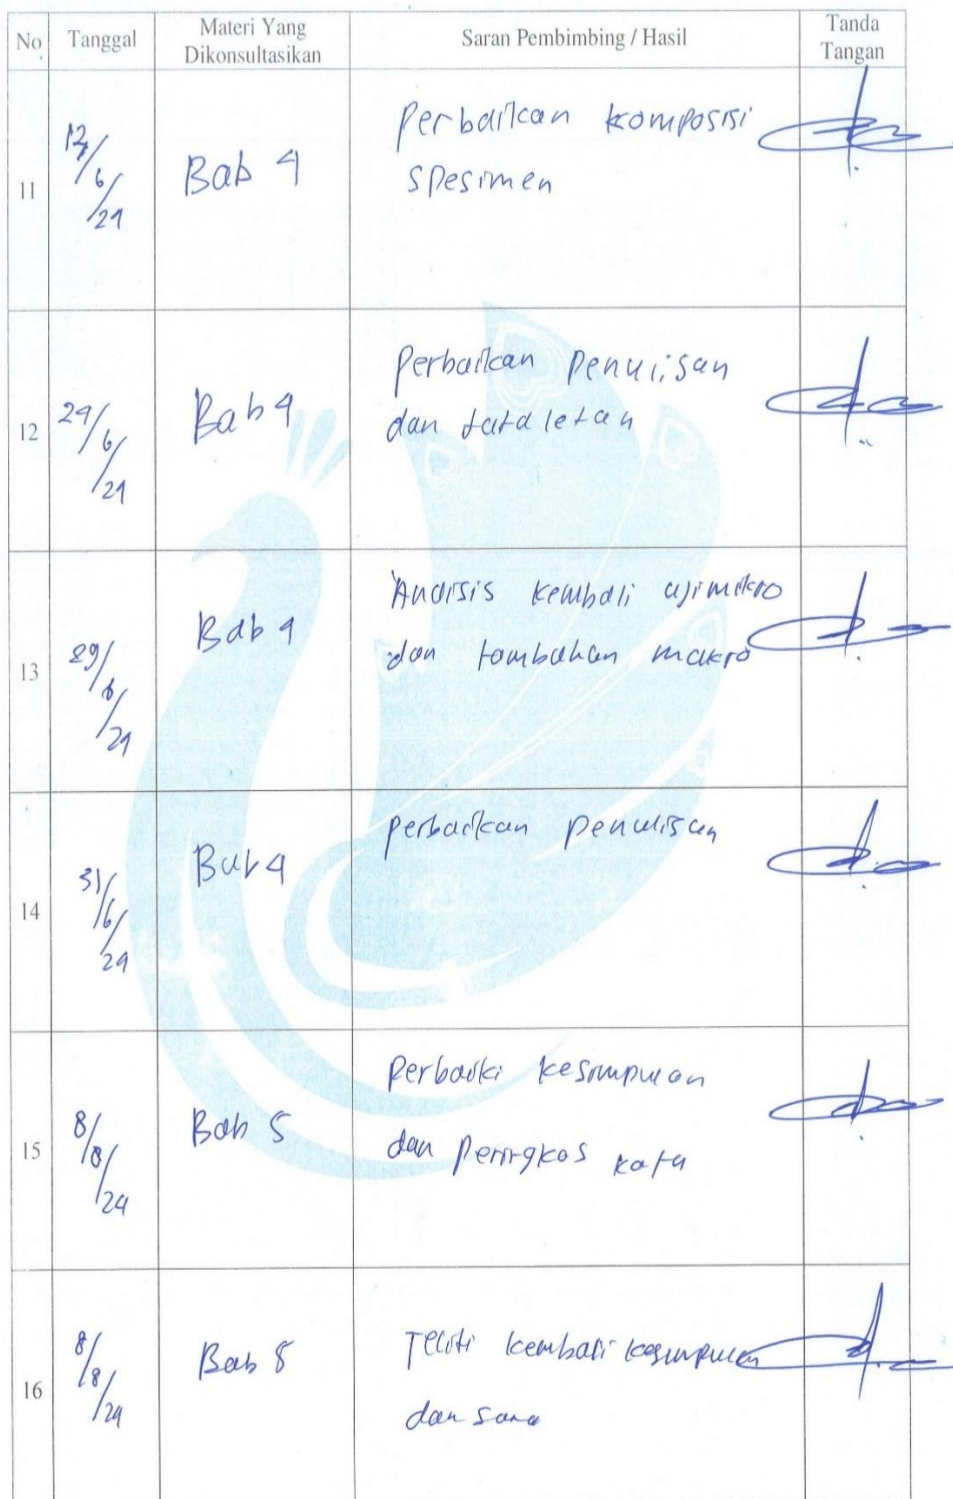 No Tanggal Materi Yang Dikonsultasikan Saran Pembimbing / Hasil Tanda Tangan
11 Bab 4 Perbaikan komposisi
spesimen
12 24/6/24 Bab 4 Perbaikan penulisan
dan tata letak
13 29/6/24 Bab 4 Analisis kembali uji mikro
dan tambahan makro
14 31/6/24 Bab 4 perbaikan penulisan
15 8/8/24 Bab 5 Perbaiki kesimpulan
dan peringkas kata
16 8/8/24 Bab 5 Teliti kembali kesimpulan
dan sara